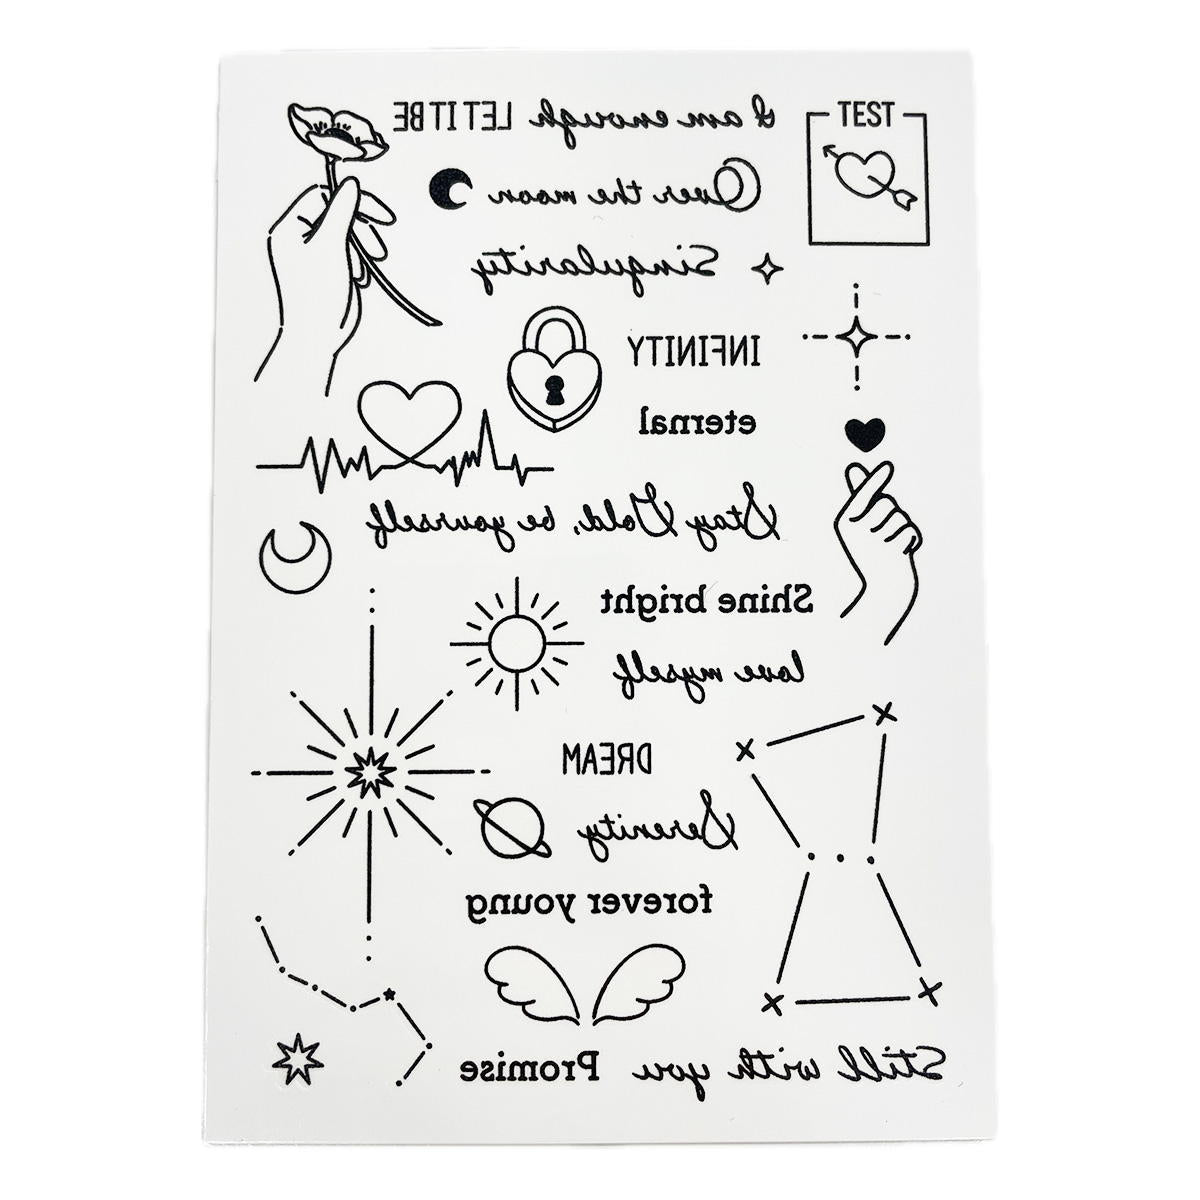 I am enough LET IT BE
TEST
Over the moon
Singularity
INFINITY
eternal
Stay Gold, be yourself
Shine bright
love myself
DREAM
Serenity
forever young
Still with you Promise